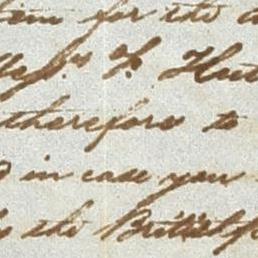 for the
Messrs. F. Hut
therefore to
in case you
the British